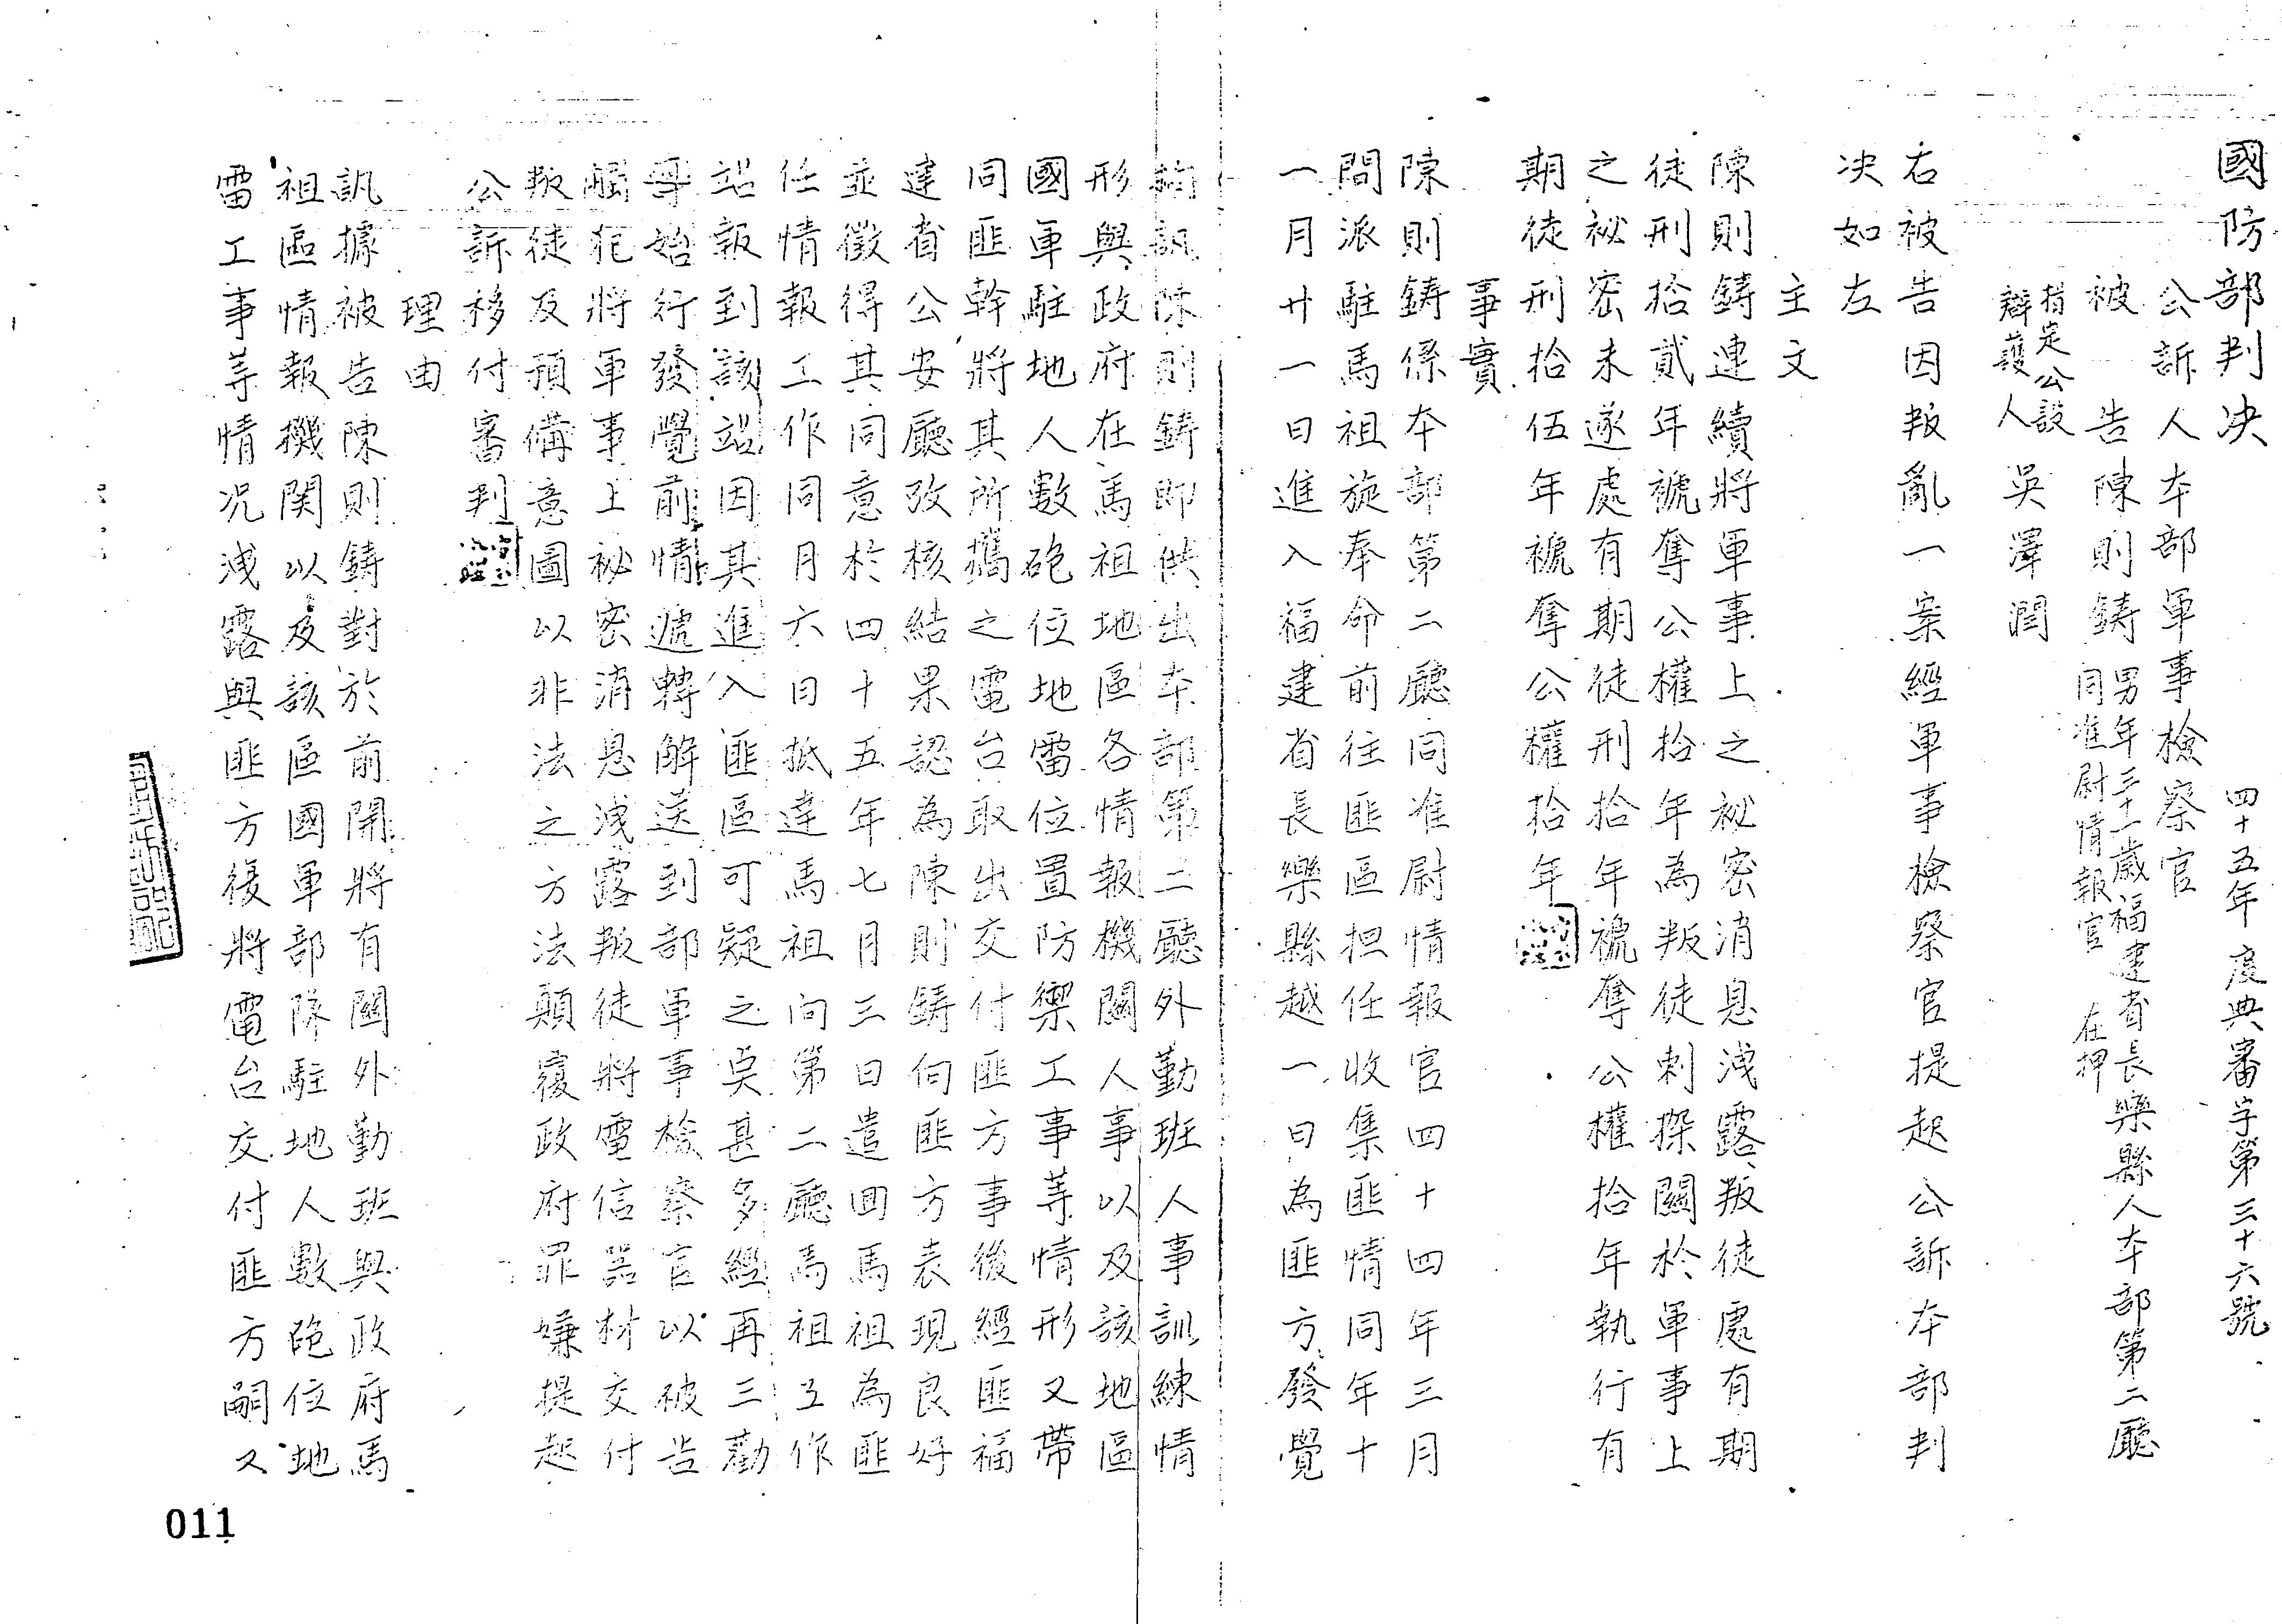 國防部判決
四十五年度典審字第三十六號
公訴人本部軍事檢察官
被告陳則鑄男年三十一歲福建省長樂縣人本部第二廳
同准尉情報官 在押
指定公設
辯護人 吳澤潤
右被告因叛亂一案經軍事檢察官提起公訴本部判
決如左
主文
陳則鑄連續將軍事上之祕密消息洩露叛徒處有期
徒刑拾貳年褫奪公權拾年為叛徒刺探關於軍事上
之祕密未遂處有期徒刑拾年褫奪公權拾年執行有
期徒刑拾伍年褫奪公權拾年
事實
陳則鑄係本部第二廳同准尉情報官四十四年三月
間派駐馬祖旋奉命前往匪區担任收集匪情同年十
一月廿一日進入福建省長樂縣越一日為匪方發覺
訊陳則鑄即供出本部第二廳外勤班人事訓練情
形與政府在馬祖地區各情報機關人事以及該地區
國軍駐地人數砲位地雷位置防禦工事等情形又帶
同匪幹將其所攜之電台取出交付匪方事後經匪福
建省公安廳攷核結果認為陳則鑄向匪方表現良好
並徵得其同意於四十五年七月三日遣回馬祖為匪
任情報工作同月六日抵達馬祖向第二廳馬祖工作
站報到該站因其進入匪區可疑之吳甚多經再三勸
導始行發覺前情遞轉解送到部軍事檢察官以被告
觸犯將軍事上祕密消息洩露叛徒將電信器材交付
叛徒及預備意圖以非法之方法顛覆政府罪嫌提起
公訴移付審判
理由
訊據被告陳則鑄對於前開將有關外勤班與政府馬
祖區情報機関以及該區國軍部隊駐地人數砲位地
雷工事等情況洩露與匪方後將電台交付匪方嗣又
011